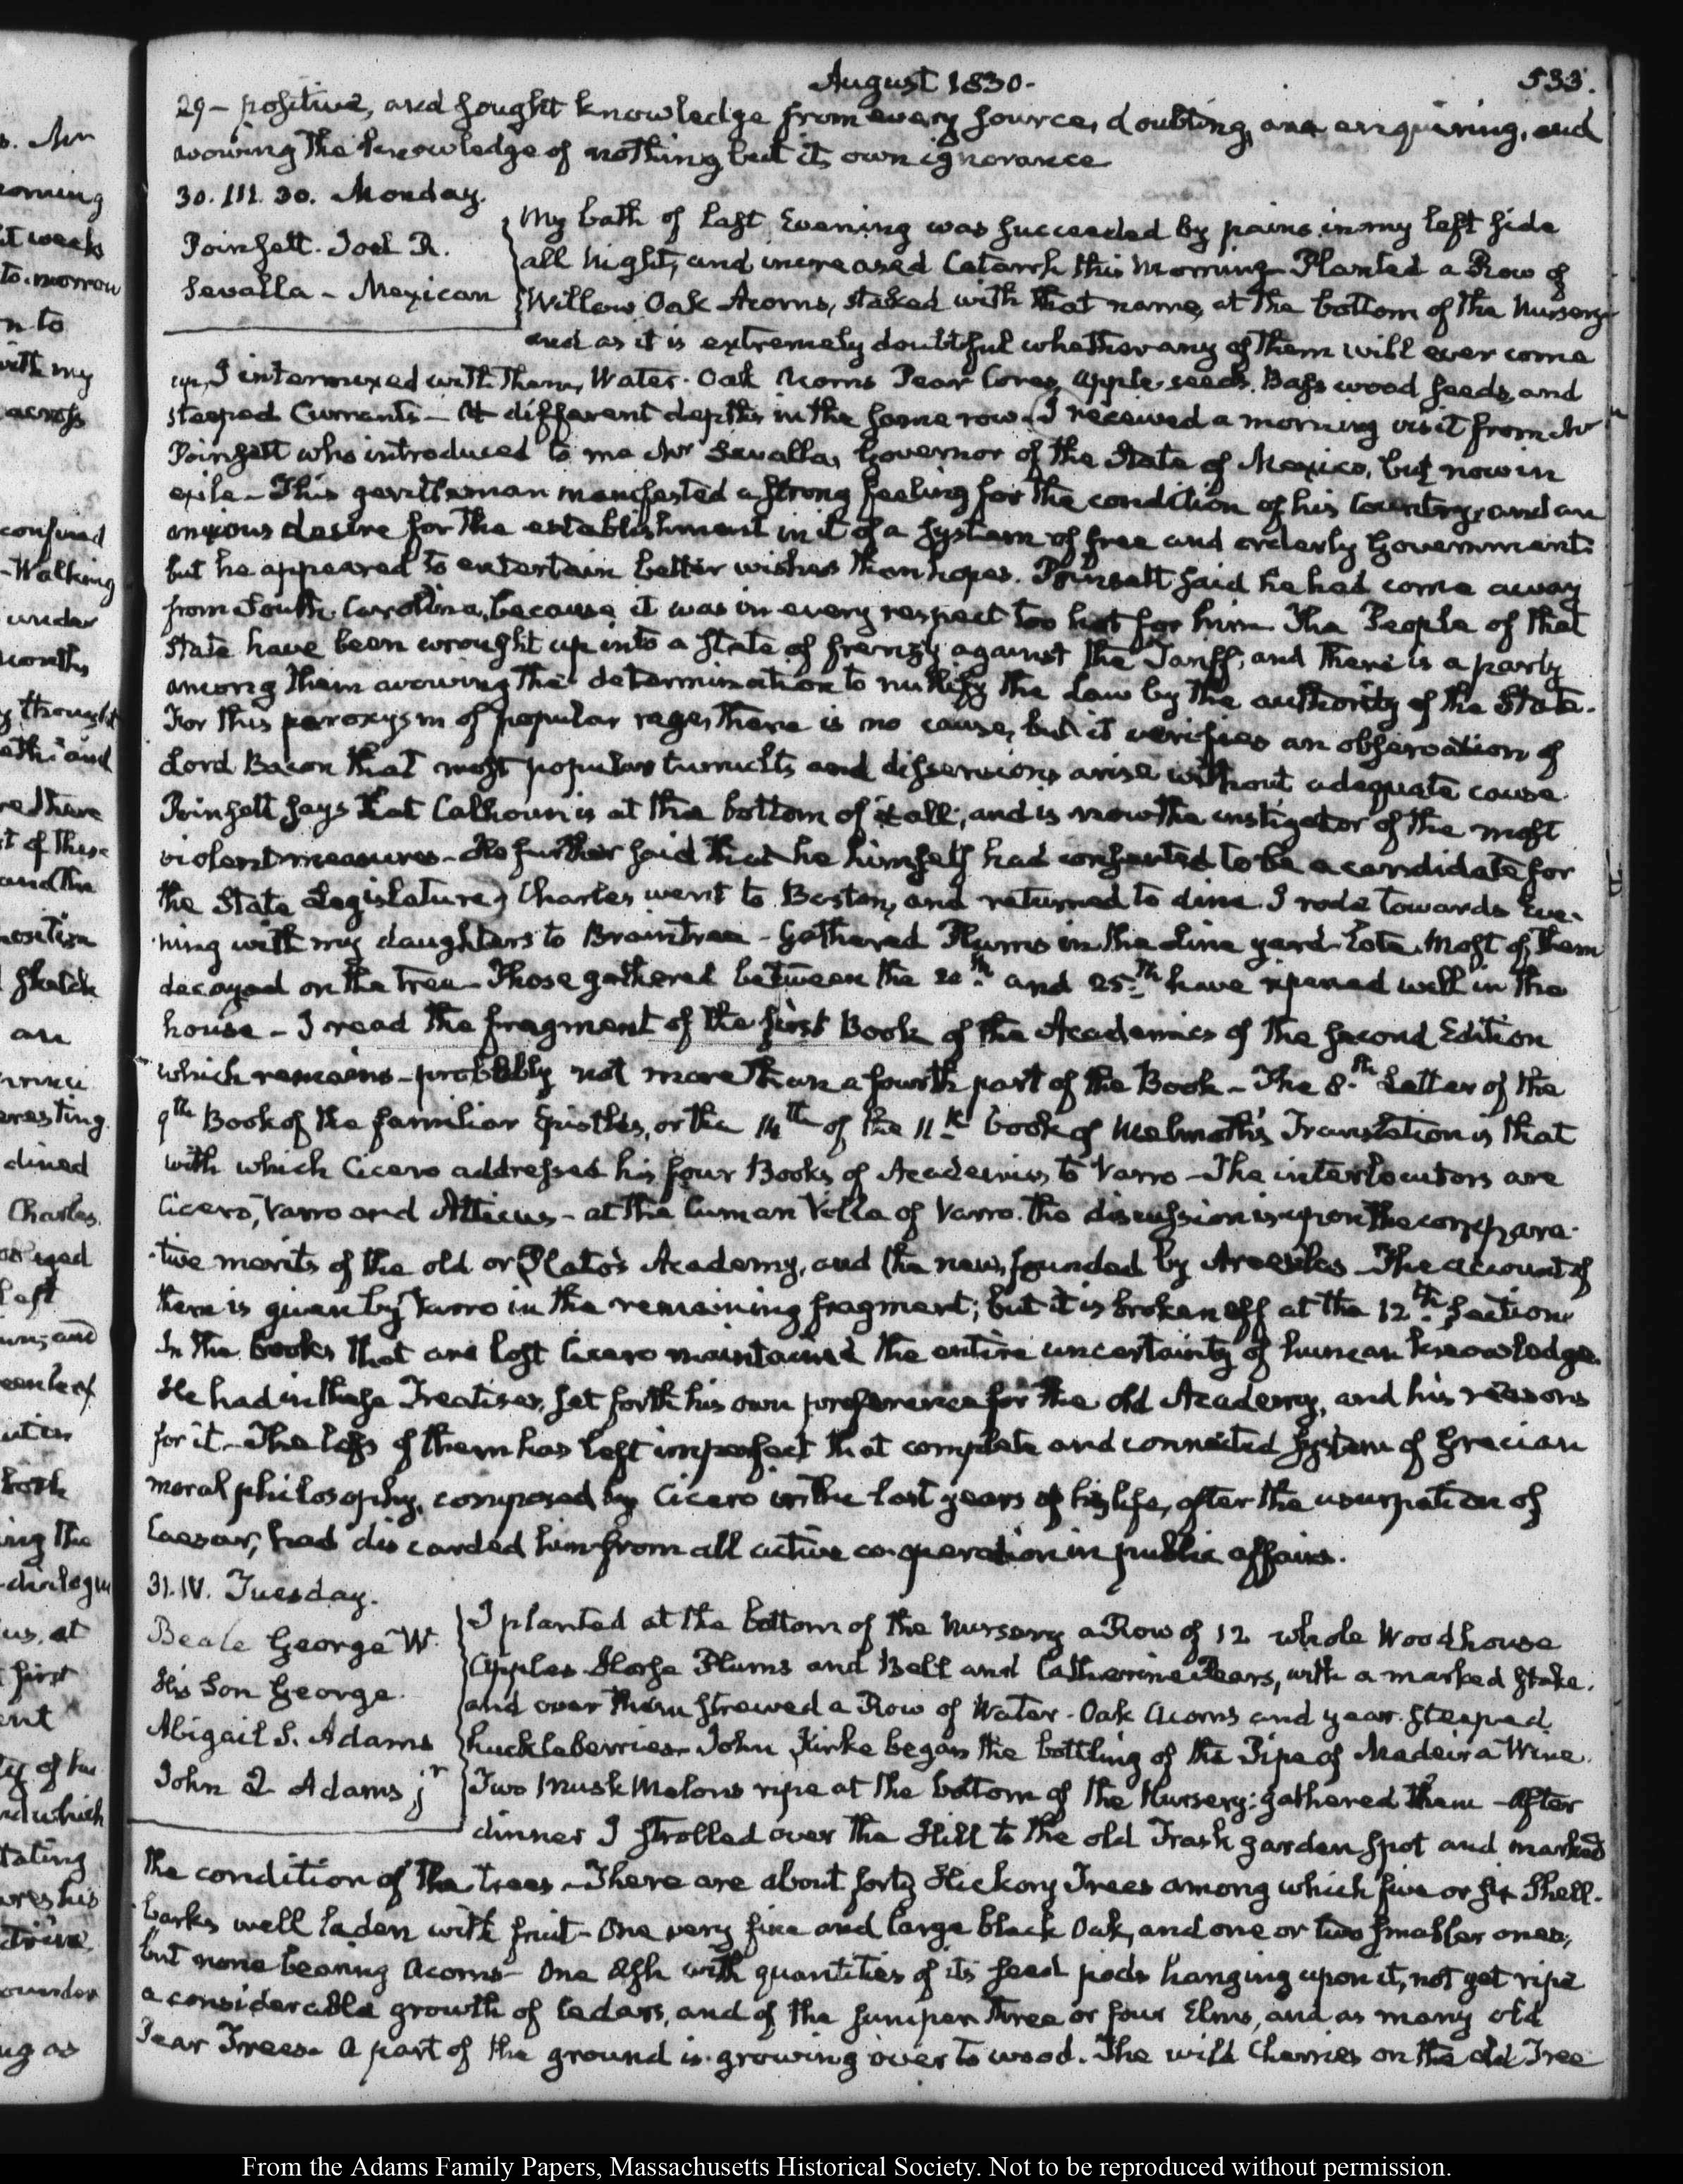 August 1830.
533.
29 - positive, and sought knowledge from every source, doubting, and enquiring, and
avowing the knowledge of nothing but its own ignorance
30. III. 30. Monday.
Poinsett. Joel R.
Sevalla - Mexican
My bath of last Evening was succeeded by pains in my left side
all Night, and increased Catarrh this Morning - Planted a Row of
Willow Oak Acorns, staked with that name, at the bottom of the Nursery
and as it is extremely doubtful whether any of them will ever come
up, I intermixed with them, Water-Oak Acorns Pear Cores, apple-seeds, Bass wood seeds, and
steeped Currants - At different depths in the same row. I received a morning visit from Mr
Poinsett who introduced to me Mr Sevalla, Governor of the State of Mexico, but now in
exile - This gentleman manifested a strong feeling for the condition of his Country, and an
anxious desire for the establishment in it of a system of free and orderly Government:
but he appeared to entertain better wishes than hopes. Poinsett said he had come away
from South Carolina, because it was in every respect too hot for him. The People of that
State have been wrought up into a state of frenzy against the Tariff, and there is a party
among them avowing the determination to nullify the Law by the authority of the State.
For this paroxysm of popular rage, there is no cause, but it verifies an observation of
Lord Bacon that most popular tumults and dissensions arise without adequate cause.
Poinsett says that Calhoun is at the bottom of it all; and is now the instigator of the most
violent measures - He further said that he himself had consented to be a candidate for
the State Legislature) Charles went to Boston, and returned to dine. I rode towards Eve-
ning with my daughters to Braintree - Gathered Plums in the Line yard late. Most of them
decayed on the tree - Those gathered between the 20th. and 25th. have ripened well in the
house - I read the fragment of the first Book of the Academics of the second Edition
which remains - probably not more than a fourth part of the Book - The 8th. Letter of the
9th Book of the familiar Epistles, or the 14th of the 11th book of Melmoth's Translation is that
with which Cicero addressed his four Books of Academics to Varro - The interlocutors are
Cicero, Varro and Atticus - at the Cuman Villa of Varro. The discussion is upon the compara-
tive merits of the old or Plato's Academy, and the new, founded by Arcesilas - The account of
them is given by Varro in the remaining fragment; but it is broken off at the 12th. section
In the books that are lost Cicero maintained the entire uncertainty of human knowledge.
He had in these Treatises, set forth his own preference for the old Academy, and his reasons
for it - The loss of them has left imperfect that complete and connected system of Grecian
moral philosophy, composed by Cicero in the last years of his life, after the usurpation of
Caesar, had discarded him from all active co-operation in public affairs.
31. IV. Tuesday.
Beale George W.
His Son George.
Abigail S. Adams
John Q Adams jr
I planted at the bottom of the Nursery a Row of 12 whole Woodhouse
Apples Horse Plums and Bell and Catherine Pears, with a marked stake.
and over them strewed a Row of Water-Oak Acorns and year-steeped
huckleberries - John Kirke began the bottling of the Pipe of Madeira Wine.
Two Musk Melons ripe at the bottom of the Nursery: gathered them - After
dinner I strolled over the Hill to the old Trask garden spot and marked
the condition of the trees - There are about forty Hickory Trees among which five or six Shell-
barks well laden with fruit - One very fine and large black Oak, and one or two smaller ones,
but none bearing Acorns - One Ash with quantities of its seed pods hanging upon it, not yet ripe
a considerable growth of Cedars, and of the juniper three or four Elms, and as many old
Pear Trees. A part of the ground is growing over to wood. The wild Cherries on the old Tree
From the Adams Family Papers, Massachusetts Historical Society. Not to be reproduced without permission.